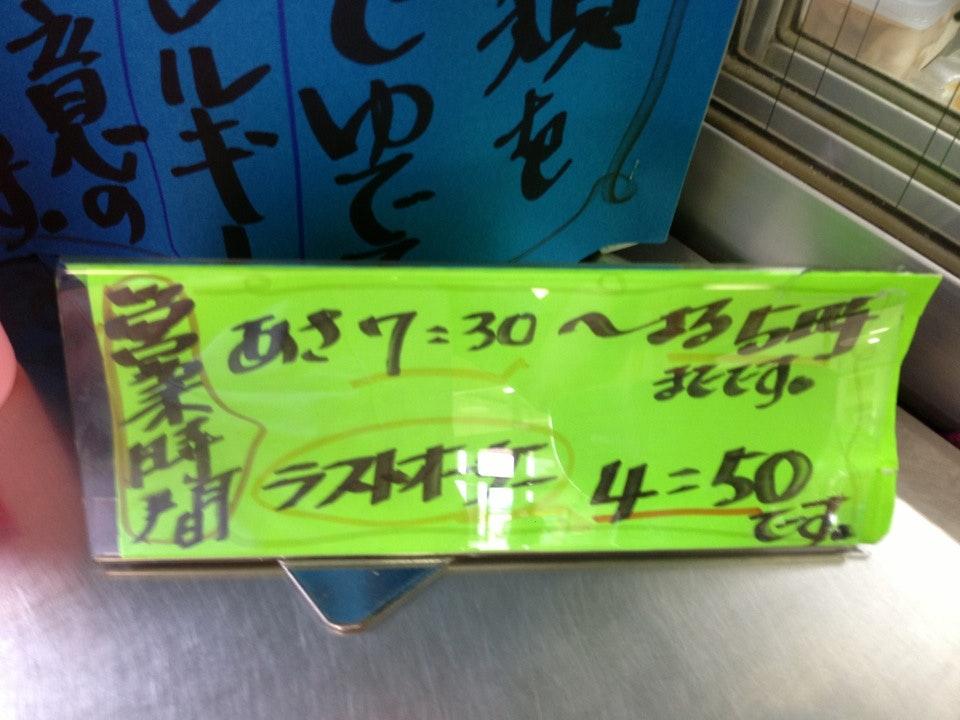 類を
じゆでて
レルギー
意の
す。
営業時間
あさ7:30〜よる5時
までです。
ラストオーダー 4:50
です。